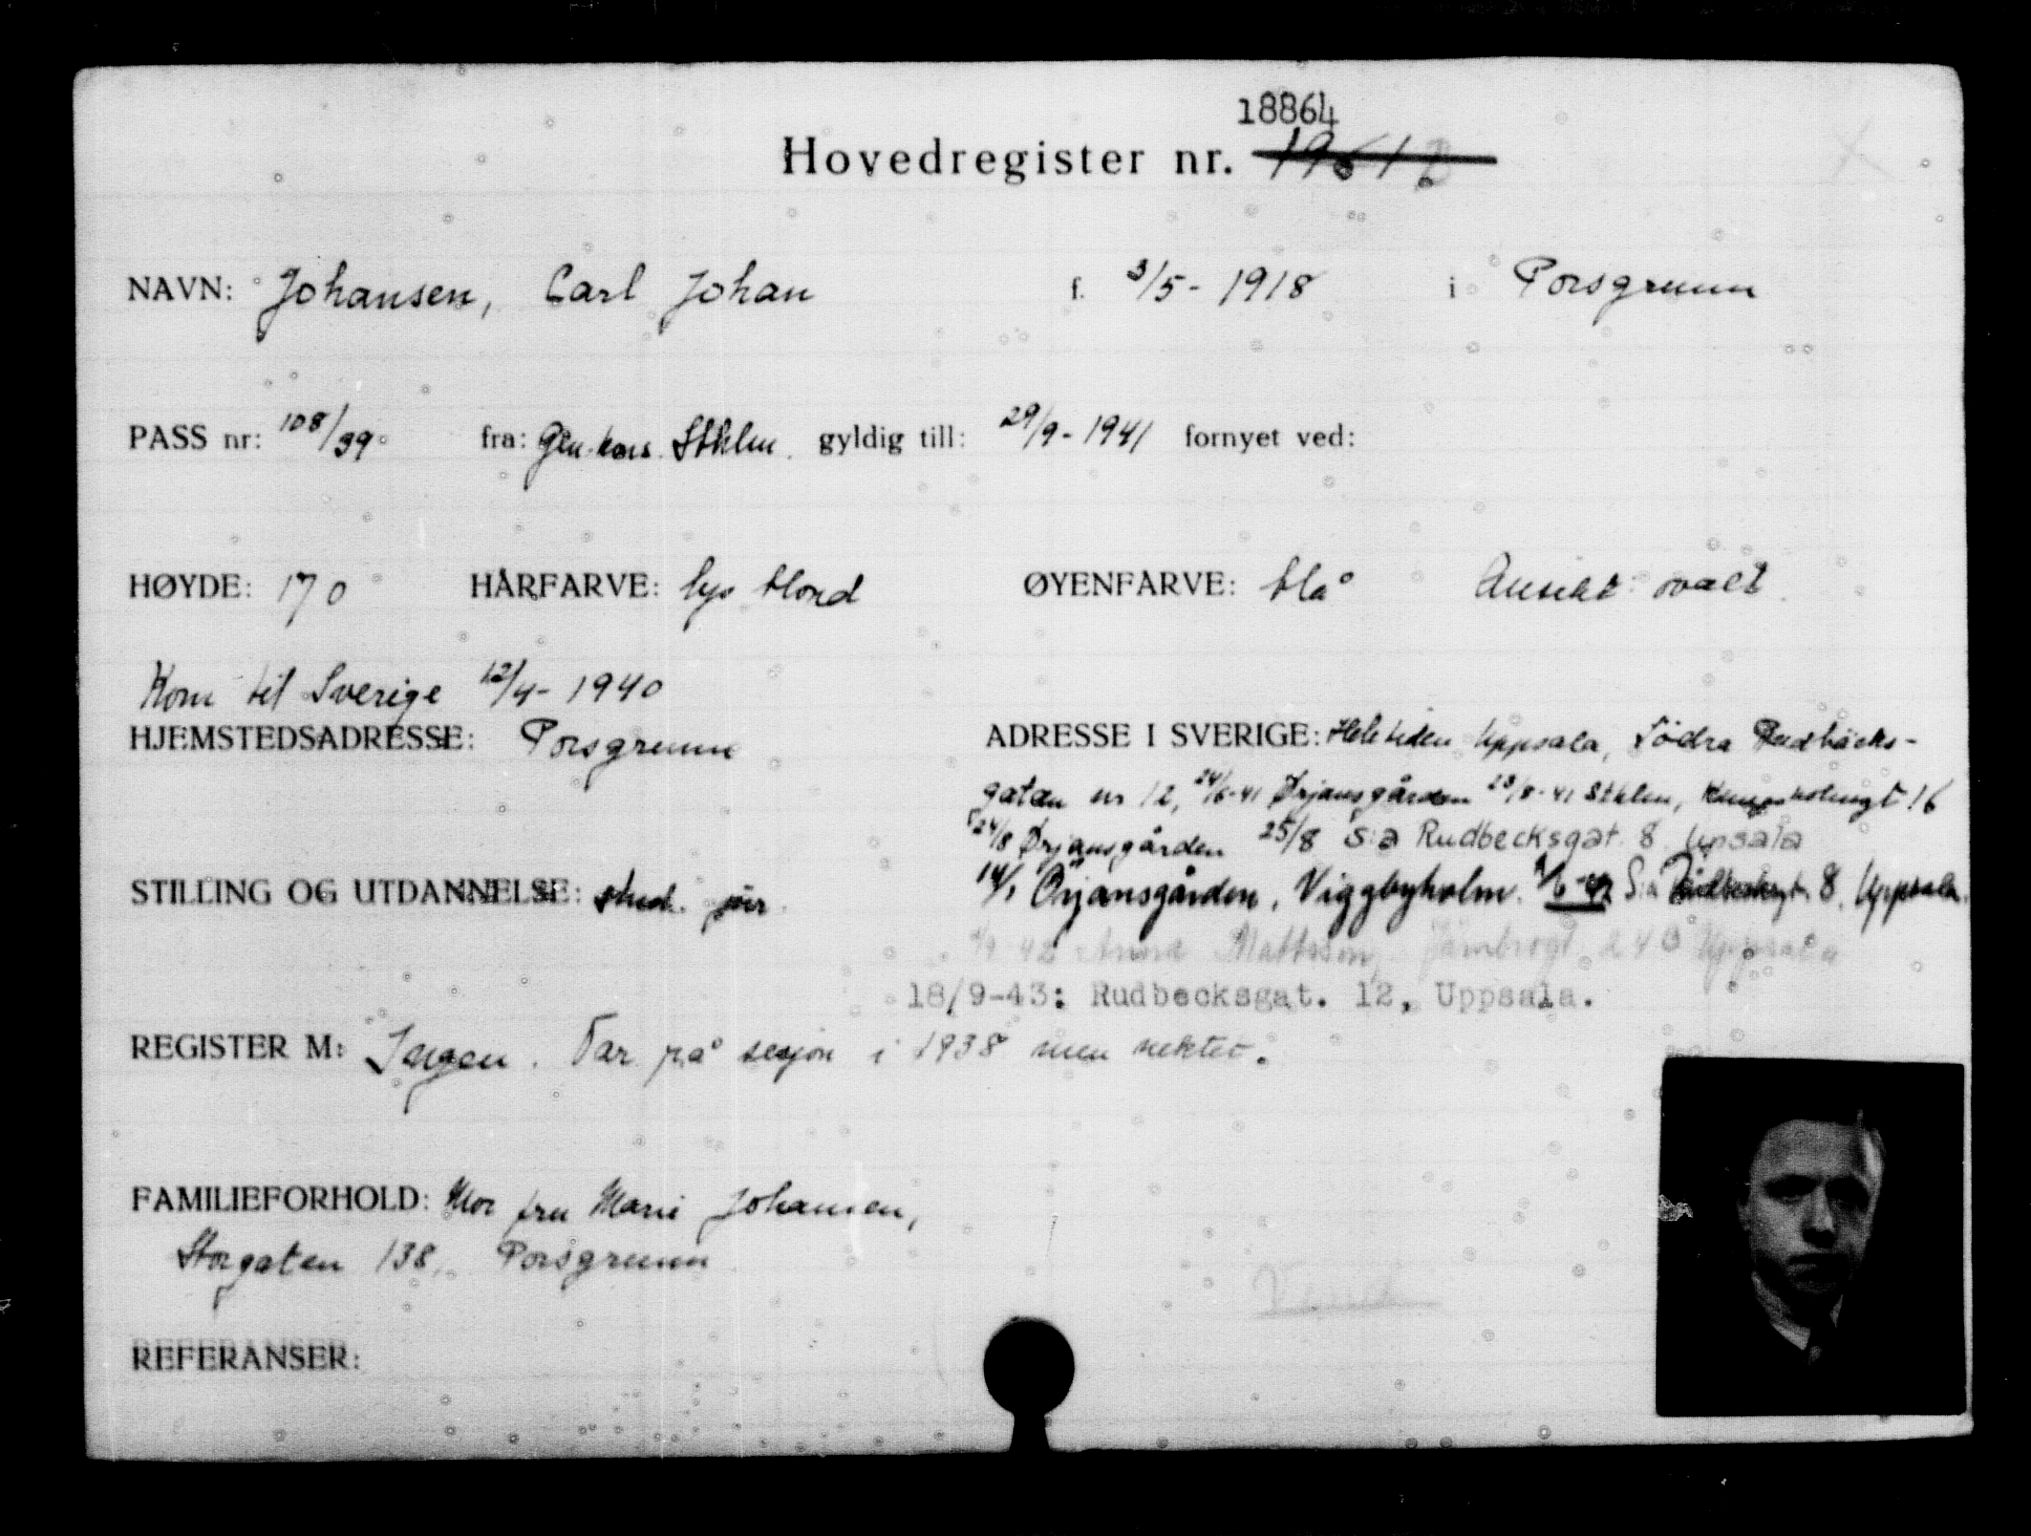 18864
Hovedregister nr. 1961 B
NAVN: Johansen, Carl Johan f. 3/5 - 1918 i Porsgrunn
PASS nr: 108/39 fra: Gen. kons. Sthlm. gyldig till: 29/9 - 1941 fornyet ved:
HØYDE: 170 HÅRFARVE: lys blond ØYENFARVE: blå Ansikt: ovalt.
Kom til Sverige 12/4 - 1940
HJEMSTEDSADRESSE: Porsgrunn
ADRESSE I SVERIGE: Hele tiden Uppsala, Södra Rudbäcks-
gatan nr 12, 24/6-41 Ørjansgården 23/8-41 Sthlm, 16
24/8 Ørjansgården 25/8 S:a Rudbecksgat. 8 Upsala
STILLING OG UTDANNELSE: stud. jur.
14/1 Örjansgården, Viggbyholm. 1/6-42 S:a Rudbecksgt. 8. Uppsala.
1/9 42 Anna Mattsson, Uppsala
18/9-43: Rudbecksgat. 12, Uppsala.
REGISTER M: Ingen. Var på sesjon i 1938 men nektet.
FAMILIEFORHOLD: Mor fru Marie Johansen,
Storgaten 138, Porsgrunn
Vend
REFERANSER: